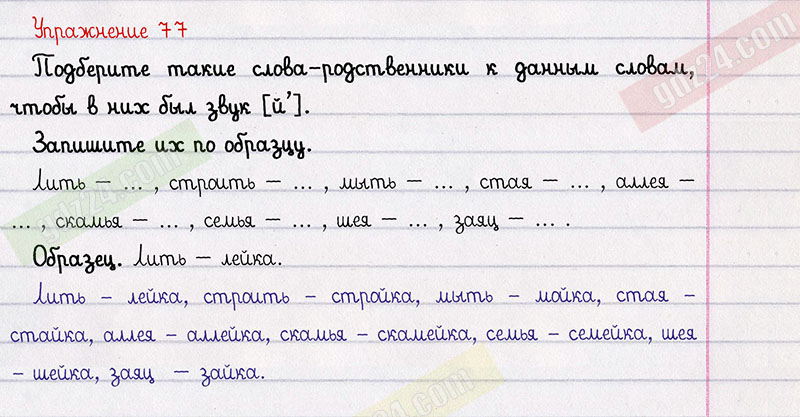 Упражнение 77
Подберите такие слова-родственники к данным словам,
чтобы в них был звук [й’].
Запишите их по образцу.
Лить – ... , строить – ... , мыть – ... , стая – ... , аллея –
... , скамья – ... , семья – ... , шея – ... , заяц – ... .
Образец. Лить – лейка.
Лить – лейка, строить – стройка, мыть – мойка, стая –
стайка, аллея – аллейка, скамья – скамейка, семья – семейка, шея
– шейка, заяц – зайка.
gdz24.com
gdz24.com
gdz24.com